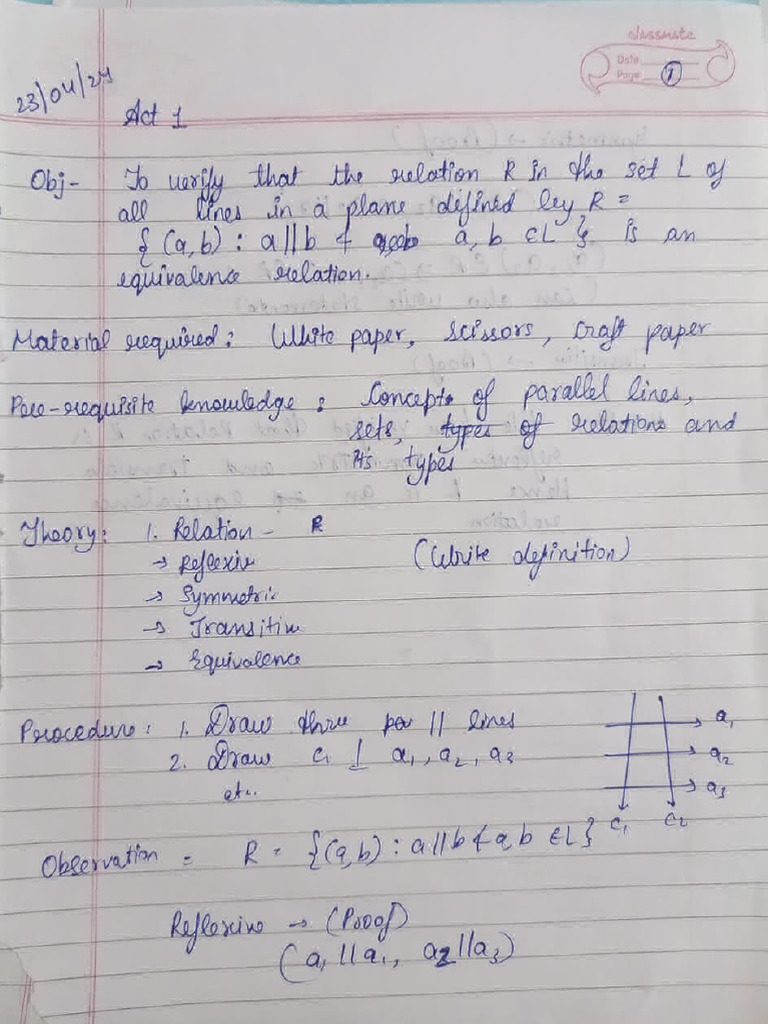 classmate
Date
Page 1
23/04/24
Act 1
Obj- To verify that the relation R in the set L of
all lines in a plane defined by R =
{ (a,b) : a||b & a, b ∈L } is an
equivalence relation.
Material required: White paper, scissors, craft paper
Pre-requisite knowledge: Concepts of parallel lines,
sets, types of relations and
its types
Theory: 1. Relation - R
→ Reflexive (Write definition)
→ Symmetric
→ Transitive
→ Equivalence
Procedure: 1. Draw three || lines
2. Draw c₁ ⊥ a₁, a₂, a₃
etc.
a₁
a₂
a₃
c₁ c₂
Observation = R = {(a,b) : a||b & a,b ∈L}
Reflexive → (Proof)
(a₁ ||a₁, a₂||a₃)